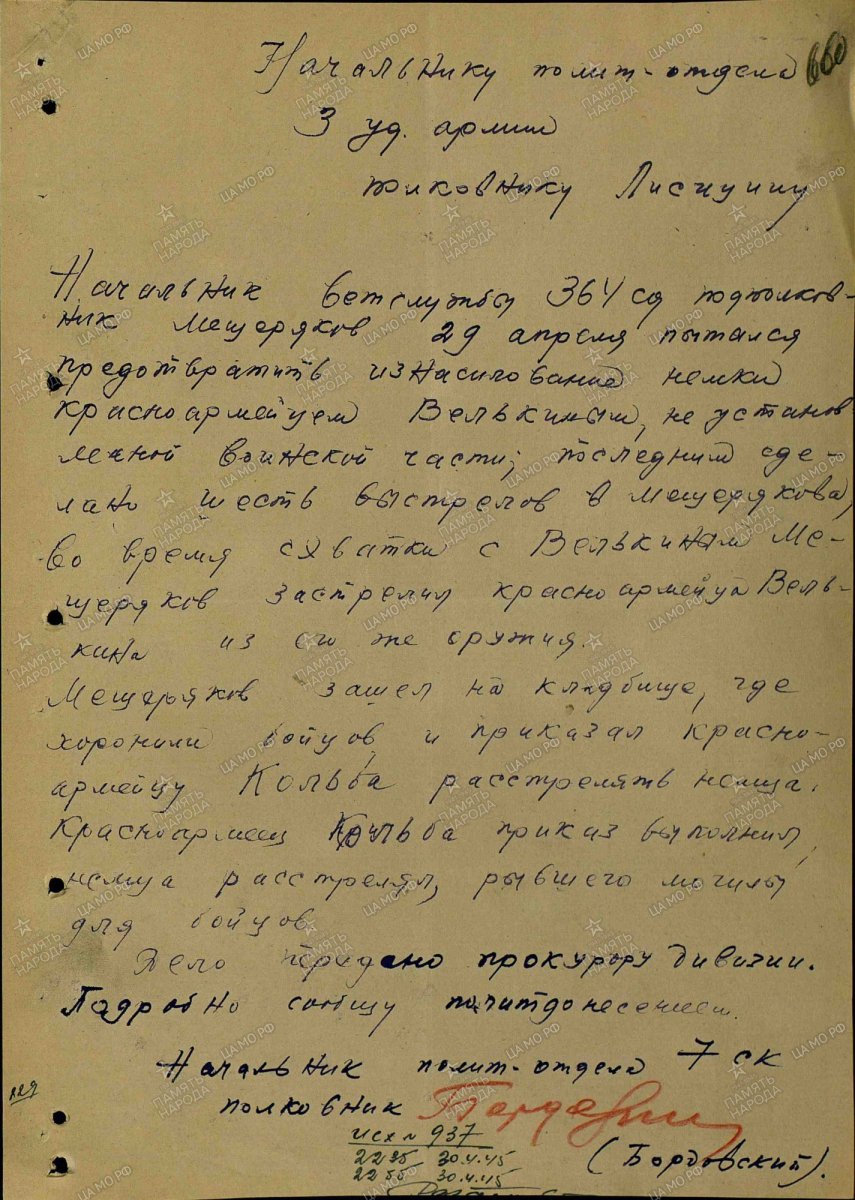 Начальнику полит-отдела
660
3 уд. армии
полковнику Лисицину
Начальник ветслужбы 364 сд подполков-
ник Мещеряков 29 апреля пытался
предотвратить изнасилование немки
красноармейцем Велькиным, не установ
леной воинской части; последним сде-
лано шесть выстрелов в Мещерякова,
во время схватки с Велькиным Ме-
щеряков застрелил красноармейца Вель-
кина из его же оружия.
Мещеряков зашел на кладбище, где
хоронили бойцов и приказал красно-
армейцу Кольба расстрелять немца.
Красноармеец Кольба приказ выполнил,
немца расстрелял, рывшего могилы
для бойцов.
Дело передано прокурору дивизии.
Падробно сообщу политдонесением.
Начальник полит-отдела 7 ск
полковник
(Бордовский).
исх № 937
22 35 30.4.45
22 55 30.4.45
ПАМЯТЬ НАРОДА
ЦАМО.РФ